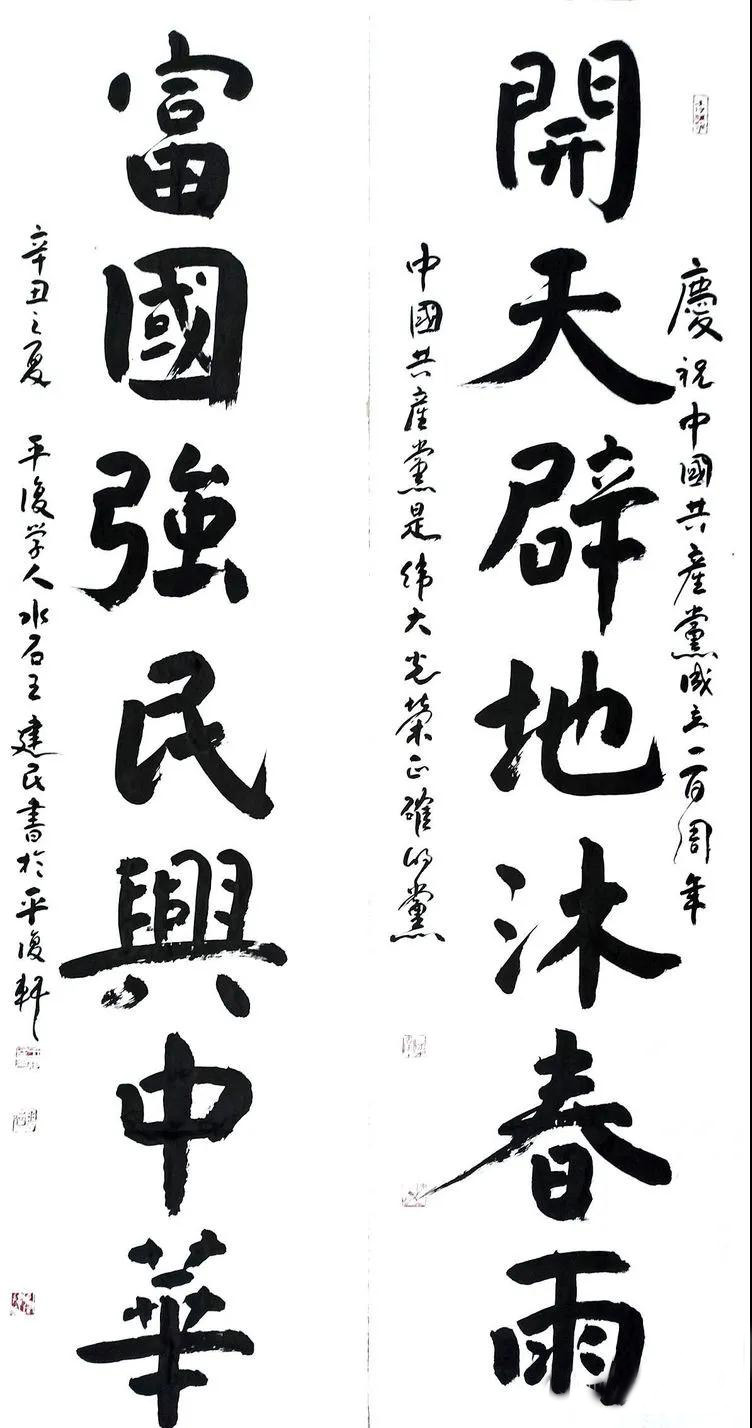 慶祝中國共產黨成立一百周年
開天辟地沐春雨
中國共產黨是偉大光榮正確的黨
富國強民興中華
辛丑之夏 平復学人水石王建民書於平復軒